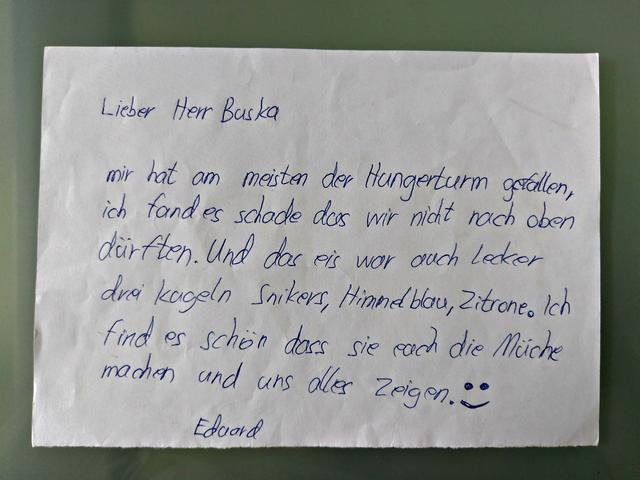 Lieber Herr Buska
mir hat am meisten der Hungerturm gefallen,
ich fand es schade das wir nicht nach oben
dürften. Und das eis war auch lecker
drei kugeln Snikers, Himmelblau, Zitrone. Ich
find es schön dass sie each die Müche
machen und uns alles Zeigen.
Eduard